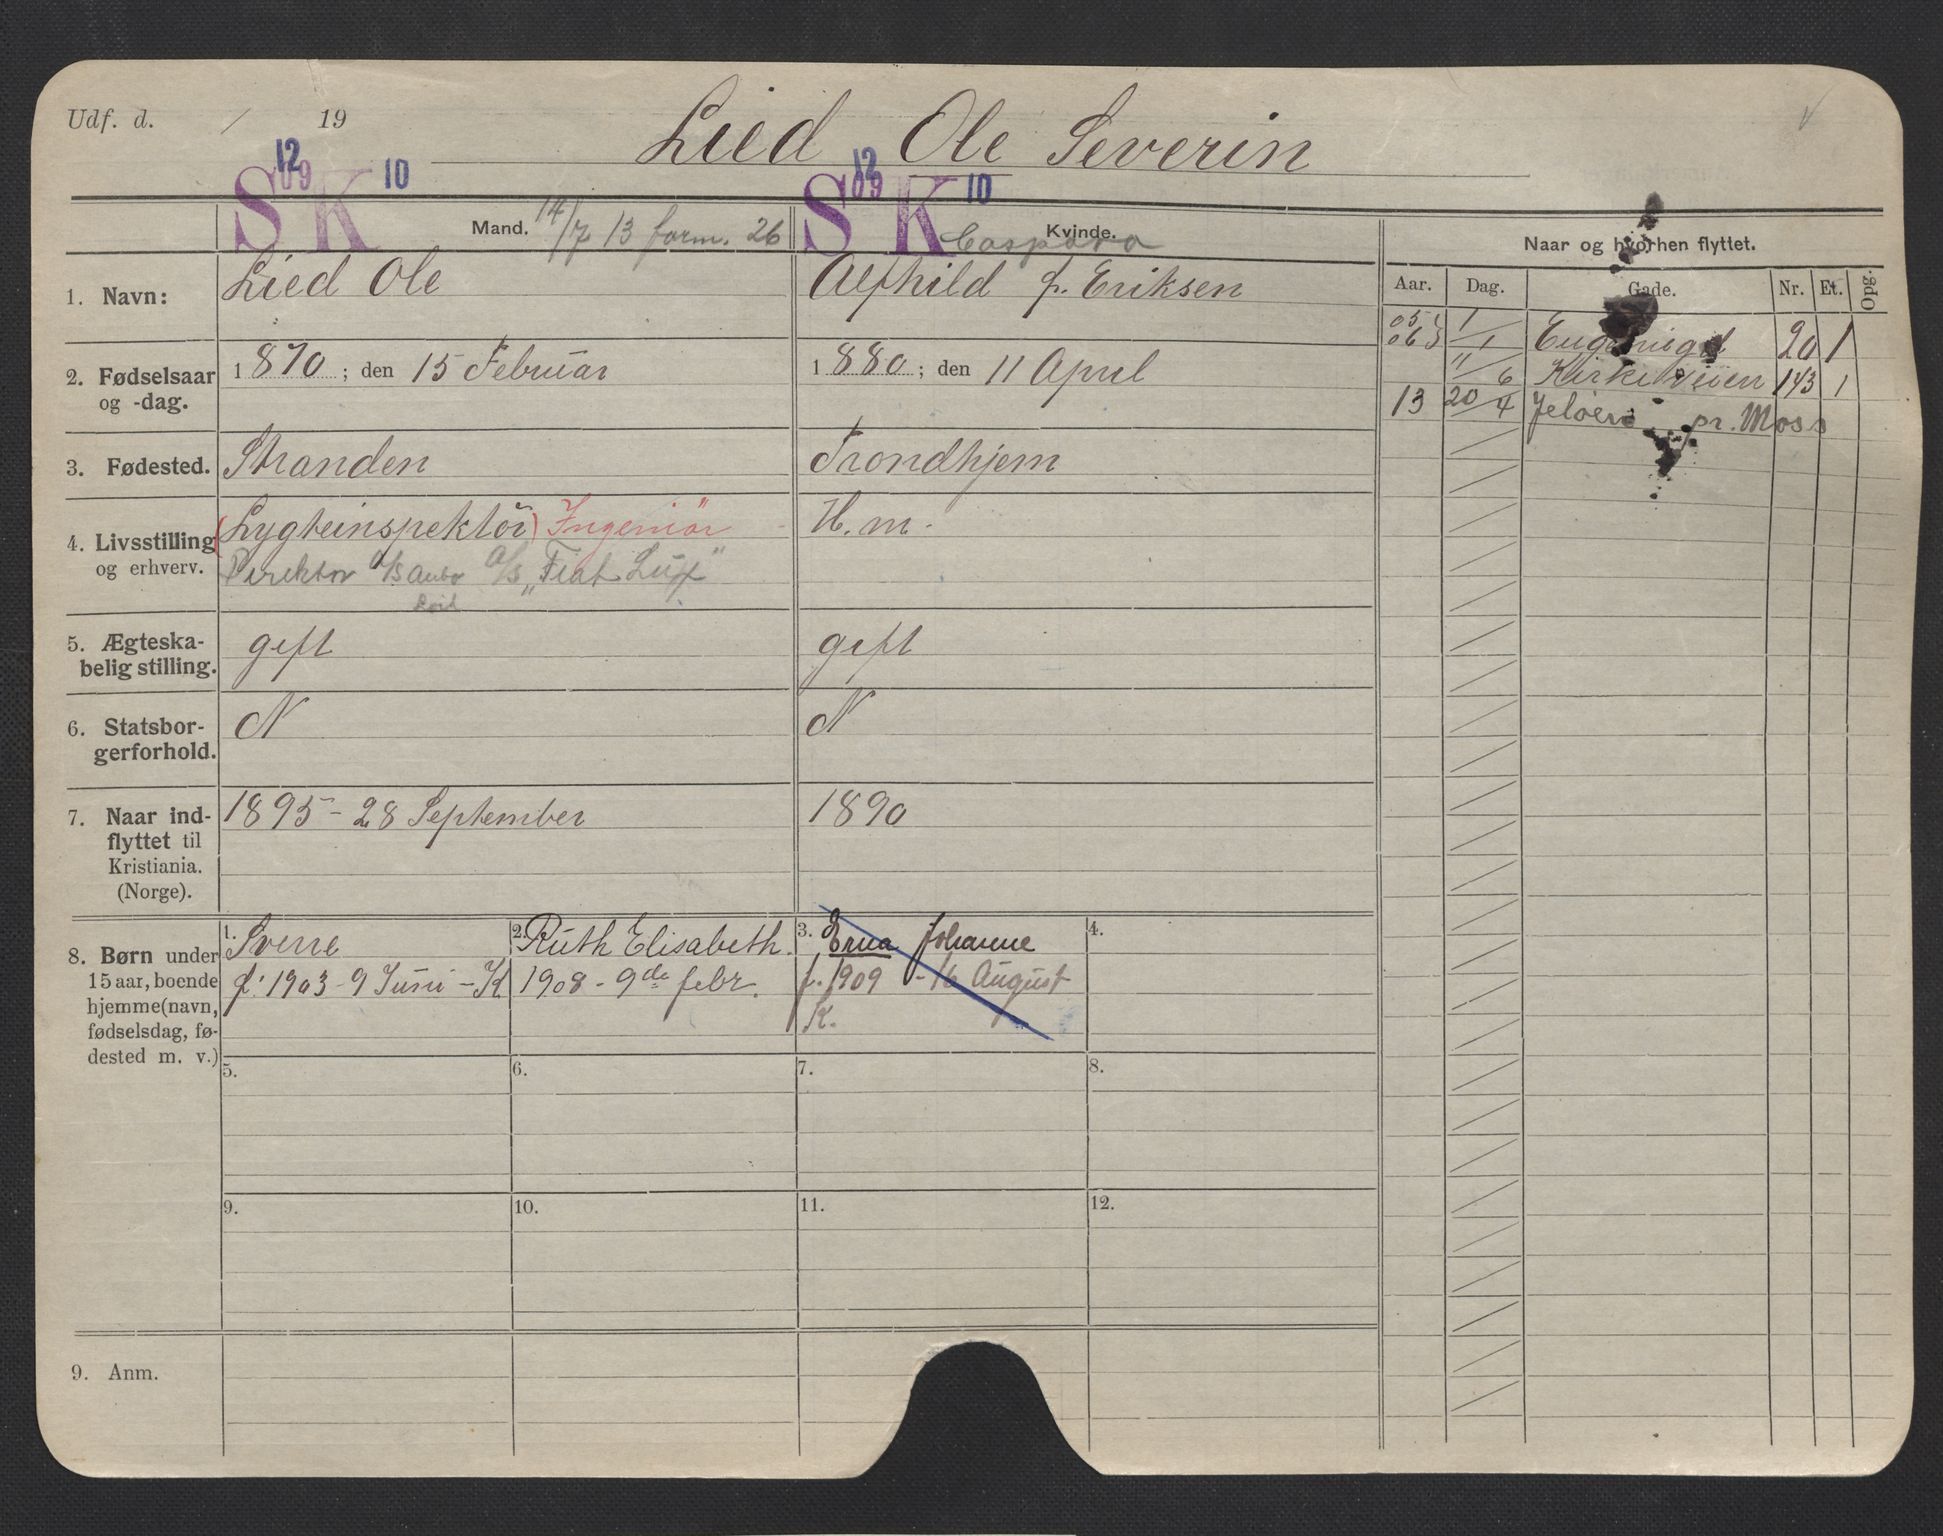 Udf. d. / 19
Lied Ole Severin
S K 12 09 10
S K 12 09 10
Mand. 14/7 13 form. 26
Kvinde.
Caspara
Naar og hvorhen flyttet.
Aar. Dag. Gade. Nr. Et. Opg.
1. Navn: Lied Ole
Alfhild f. Eriksen
05 1/1 Eugeniesgd 20 1
06
11/6 Kirkeveien 143 1
13 20/4 Jeløen pr. Moss
2. Fødselsaar og -dag.
1870; den 15 Februar
1880; den 11 April
3. Fødested. Stranden
Trondhjem
4. Livsstilling og erhverv.
(Lygteinspektör) Ingeniör
Direktor A/S Auto A/S "Fiat Lux"
H. m.
5. Ægteskabelig stilling.
gift
gift
6. Statsborgerforhold.
N
N
7. Naar indflyttet til Kristiania. (Norge).
1895 - 28 September
1890
8. Børn under 15 aar, boende hjemme (navn, fødselsdag, fødested m. v.)
1. Sverre
f. 1903 - 9 Juni - K
2. Ruth Elisabeth.
1908 - 9de febr.
3. Erna Johanne
f. 1909 - 16 August
K.
4.
5.
6.
7.
8.
9.
10.
11.
12.
9. Anm.